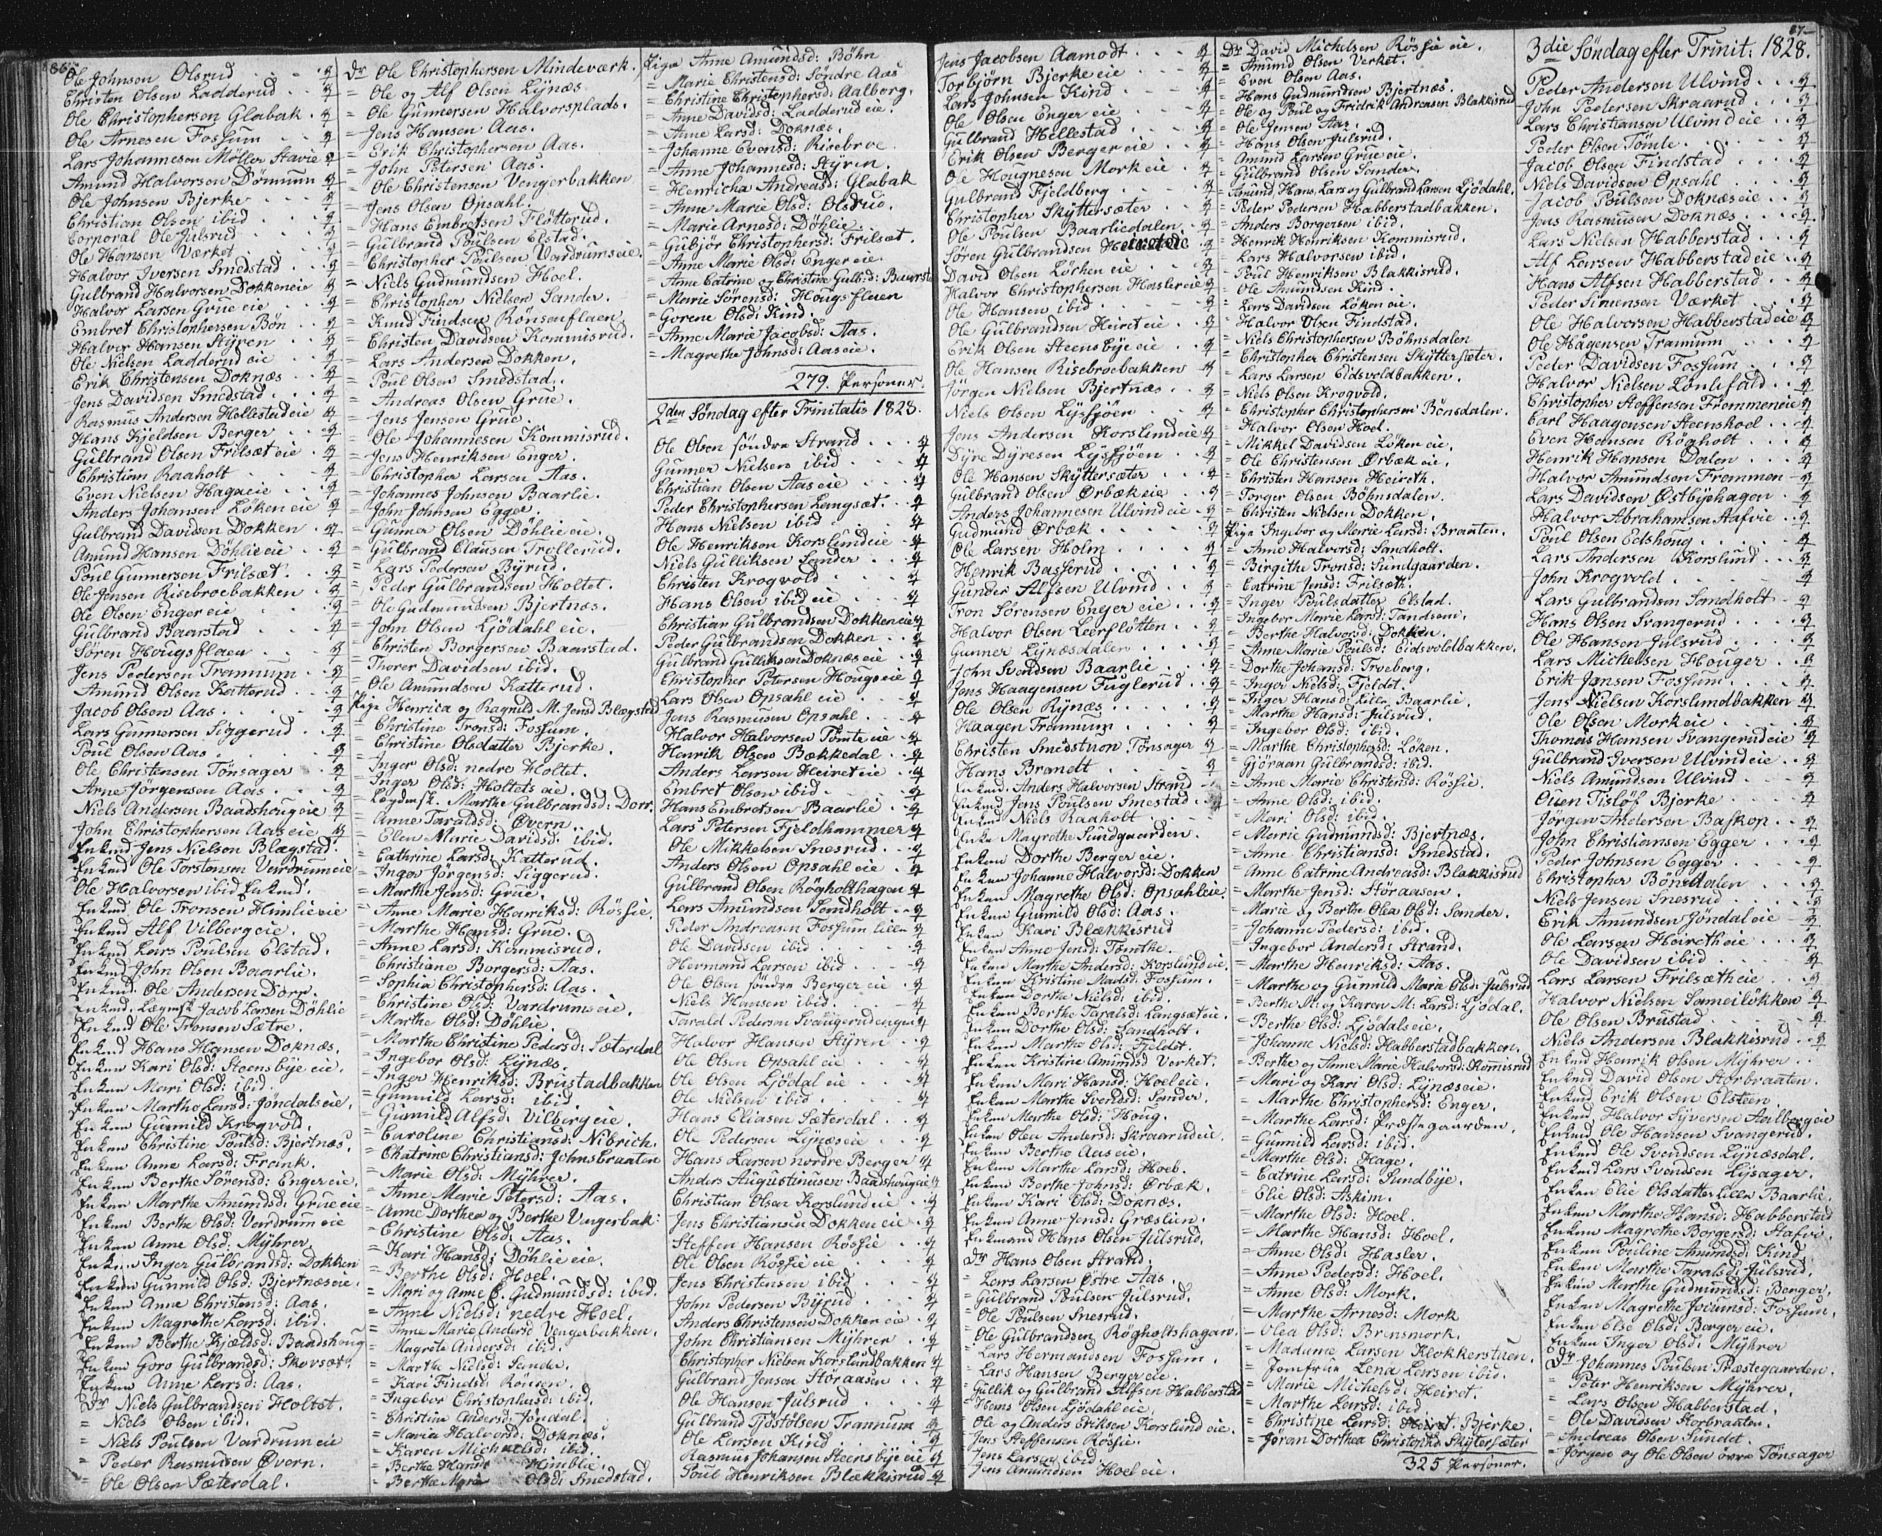 86.
Ole Johnsen Olsrud
Christen Olsen Ladderud
Ole Christophersen Glabak
Ole Arnesen Fossum
Lars Johannesen Møller Stavie
Amund Halvorsen Dømum
Ole Johnsen Bjerke
Christian Olsen ibid
Corporal Ole Julsrud
Ole Hansen Værket
Halvor Iversen Smedstad
Gulbrand Halvorsen Dokkeneie
Halvor Larsen Grue eie
Embret Christophersen Bøn
Halvor Hansen Styren
Ole Nielsen Ladderud eie
Erik Christensen Doknæs
Jens Davidsen Smedstad
Rasmus Andersen Hellestad eie
Hans Kjeldsen Berger
Gulbrand Olsen Frilsæt eie
Christian Raaholt
Even Nielsen Haga eie
Anders Johansen Løken eie
Gulbrand Davidsen Dokken
Amund Hansen Døhlie eie
Poul Gunnersen Frilsæt
Ole Jensen Risebroebakken
Ole Olsen Enger eie
Gulbrand Baarstad
Søren Hougsflaen
Jens Pedersen Tramum
Amund Olsen Katterud
Jacob Olsen Aas
Lars Gunnersen Siggerud
Poul Olsen Aas
Ole Christensen Tønsager
Arne Jørgensen Aas
Niels Andersen Baadshoug eie
John Christophersen Aas eie
Enkmd Jens Nielsen Blægstad
Enkmd Ole Torstensen Vardrum eie
Ole Halvorsen ibid Enkmd.
Enkmd Ole Tronsen Himlie eie
Enkmd Alf Vilberg eie
Enkmd Lars Poulsen Elstad
Enkmd John Olsen Baarlie
Enkmd Ole Andersen Dorr
Enkmd. Lægmsk. Jacob Larsen Døhlie
Enkmd Ole Tronsen Sætre
Enkmd Hans Hansen Doknæs
Enken Kari Olsd: Steensbye eie
Enken Mari Olsd: ibid
Enken Marthe Larsd: Jøndals eie
Enken Gunnild Krogvold
Enken Christine Poulsd: Bjertnæs
Enken Anne Larsd: Frank
Enken Berthe Sørensd: Enger eie
Enken Marthe Amundsd: Grue eie
Enken Berthe Olsd: Vardrum eie
Enken Anne Olsd: Myhrer
Enken Inger Gulbrandsd: Dokken
Enken Gunnild Olsd: Bjertnæs eie
Enken Anne Christensd: Aas
Enken Magrethe Larsd: ibid
Enken Berthe Kjeldsd: Baadshoug
Enken Goro Gulbrandsd: Skovsæt
Enken Anne Larsd: Aas
Dr Niels Gulbrandsen Holtet
= Niels Olsen ibid
= Niels Poulsen Vardrum eie
= Peder Rasmussen Øvern
Ole Olsen Sæterdal
Dr Ole Christophersen Mindeværk
= Ole og Alf Olsen Lynæs
= Ole Gunnersen Halvorsplads
= Jens Hansen Aas
= Erik Christophersen Aas
= John Petersen Aas
= Ole Christensen Vengerbakken
= Jens Olsen Opsahl
= Hans Embretsen Fløtterud
= Gulbrand Poulsen Elstad
= Christopher Poulsen Vardrums eie
= Niels Gudmundsen Hoel
= Christopher Nielsen Sander
= Knud Findsen Rønsenflaen
= Christen Davidsen Kommisrud
= Lars Andersen Dokken
= Poul Olsen Smedstad
= Andreas Olsen Grue
= Jens Jensen Grue
= Ole Johannesen Kommisrud
= Jens Henriksen Enger
= Christopher Larsen Aas
= Johannes Johnsen Baarlie
= John Johnsen Egge
= Gunner Olsen Døhlie eie
= Gulbrand Clausen Trollerud
= Lars Pedersen Byrud
= Peder Gulbrandsen Holtet
= Ole Gudmundsen Bjertnæs
= John Olsen Ljødahl eie
= Christen Borgersen Baarstad
= Thorer Davidsen ibid
= Ole Amundsen Katterud
Pige Henrica og Ragnild M. Jensd Blægstad
= Christine Tronsd: Fossum
= Christine Olsdatter Bjerke
= Inger Olsd: nedre Holtet
= Inger Olsd: Holtets eie
= Marthe Gulbrandsd: Dorr
= Anne Taraldsd: Øvern
= Elen Marie Davidsd: ibid
= Cathrine Larsd: Katterud
= Inger Jørgensd: Siggerud
= Marthe Jensd: Grue
= Anne Marie Henriksd: Røssie
= Marthe Hansd: Grue
= Anne Larsd: Kommisrud
= Christiane Borgersd: Aas
= Sophia Christophersd: Aas
= Christine Olsd: Vardrums eie
= Marthe Olsd: Døhlie
= Marthe Christine Pedersd: Sæterdal
= Ingebor Olsd: Lynæs
= Inger Henriksd: Brustadbakken
= Gunnild Larsd: ibid
= Gunild Alfsd: Vilberg eie
= Caroline Christiansd: Nibrich
= Chatrine Christiansd: Johnsbraaten
= Marie Olsd: Myhrer
= Anne Marie Petersd: Aas
= Anne Dorthea og Berthe Vengerbak:
= Christine Olsd: Aas
= Kari Hansd: Døhlie eie
= Berthe Olsd: Hoel
= Mari og Anne E. Gudmundsd: ibid
= Anne Nielsd: nedre Hoel
= Anne Marie Anderie Vengerbakken
= Magrete Andersd: ibid
= Marthe Nielsd: Sander
= Kari Findsd: Rønsen
= Ingebor Christophersd: ibid
= Christine Andersd: Jøndal
= Maria Halvorsd: Doknæs
= Karen Michaelsd: ibid
= Berthe Marie Himblie
= Berthe Marie Olsd: Smedstad
Pigen Anne Amundsd: Bøhn
= Marie Christensd: Søndre Aas
= Christine Christophersd: Aalborg
= Anne Davidsd: Ladderud eie
= Anne Larsd: Doknæs
= Johanne Evensd: Risebroe
= Anne Johannesd: Styren
= Henricha Andreasd: Glabak
= Anne Marie Olsd: Olsrud
= Marie Arnesd: Døhlie
= Gubjør Christophersd: Frilsæt
= Anne Marie Olsd: Enger eie
= Anne Catrine og Christine Gulb:d: Baarsta
= Marie Sørensd: Hougsflaen
= Gorene Olsd: Kind
= Anne Marie Jacobsd: Aas
= Magrethe Johnsd: Aas eie
279. Personer.
2den Søndag efter Trinitatis 1828.
Ole Olsen søndre Strand
Gunner Nielsen ibid
Christian Olsen Aas eie
Peder Christophersen Langsæt
Hans Nielsen ibid
Ole Henriksen Korslund eie
Niels Gulliksen Sander
Christen Krogvold
Hans Olsen ibid eie
Christian Gulbrandsen Dokken eie
Peder Gulbrandsen Dokken
Gulbrand Gulliksen Doknæs eie
Christopher Petersen Hougs eie
Lars Olsen Opsahl eie
Jens Rasmusen Opsahl
Halvor Halvorsen Tømte eie
Henrik Olsen Bækkedal
Anders Larsen Heiret eie
Embret Olsen ibid
Hans Embretsen Baarlie
Lars Petersen Fjeldhammer
Ole Mikkelsen Snesrud
Anders Olsen Opsahl eie
Gulbrand Olsen Røgholthagen
Lars Amundsen Sandholt
Peder Andreasen Fossum lille
Ole Davidsen ibid
Hermand Larsen ibid
Ole Olsen søndre Berger eie
Niels Hansen ibid
Tarald Pedersen Svangerudengen
Halvor Hansen Styren
Ole Olsen Opsahl eie
Ole Olsen Ljødal eie
Ole Nielsen ibid
Hans Eliasen Sæterdal
Ole Pedersen Lynæs eie
Hans Larsen nordre Berger
Anders Augustinusen Baadshoug eie
Christian Olsen Korslund eie
Jens Christiansen Dokken eie
Steffen Hansen Røssie
Ole Olsen Røssie eie
Jens Christensen ibid
John Pedersen Byrud
Anders Christensen Dokken eie
John Christiansen Myhrer
Christopher Nielsen Korslundbakken
Gulbrand Jensen Storaasen
Ole Hansen Julsrud
Gulbrand Tjøstølsen Tramum
Ole Larsen Kind
Rasmus Johansen Steensbye eie
Poul Henriksen Blækkisrud
Jens Jacobsen Aamodt
Torbjørn Bjerke eie
Lars Johnsen Kind
Ole Olsen Enger eie
Gulbrand Hellestad
Erik Olsen Berger eie
Ole Hougnesen Mork eie
Gulbrand Fjeldberg
Christopher Skyttersæter
Ole Poulsen Baarliedalen
Søren Gulbrandsen
David Olsen Løchen eie
Halvor Christophersen Hasler eie
Ole Hansen ibid
Ole Gulbrandsen Heiret eie
Erik Olsen Steensbye eie
Ole Hansen Risebroebakken
Jørgen Nielsen Bjertnæs
Niels Olsen Lysjøen
Jens Andersen Korslund eie
Dyre Dyresen Lysjøen
Ole Hansen Skyttersæter
Gulbrand Olsen Ørbæk eie
Anders Johannesen Ulvind eie
Gudmund Ørbæk
Ole Larsen Holm
Henrik Basserud
Gunder Alfsen Ulvind
Tron Sørensen Enger eie
Halvor Olsen Leerfløtten
Gunner Lynæsdalen
John Svendsen Baarlie
Jens Haagensen Fuglerud
Ole Olsen Rynæs
Haagen Trømmum
Christen Smedstuen Tønsager
Hans Brandt
Enkmd. Anders Halvorsen Strand
Enkmd Jens Poulsen Smestad
Enkmd Niels Raaholt
Enke Magrethe Sundgaarden
Enken Dorthe Berger eie
Enken Johanne Halvorsd: Dokken
Enken Magrethe Olsd: Opsahl eie
Enken Gunnild Olsd: Aas
Enken Kari Blækkisrud
Enken Anne Jensd: Tømthe
Enken Marthe Andersd: Korslund eie
Enken Kristine Madsd: Fossum
Enken Dorthe Nielsd: ibid
Enken Berthe Taralsd: Langsæt eie
Enken Dorthe Olsd: Sandholt
Enken Marthe Olsd: Fjeldet
Enken Kristine Amundsd Verket
Enken Mari Hansd: Hoel eie
Enken Marthe Svendsd: Sander
Enken Marthe Olsd: Houg
Enken Olea Andersd: Skraarud eie
Enken Berthe Aas eie
Enken Marthe Larsd: Hoel
Enken Berthe Johnsd: Ørbæk
Enken Kari Olsd: Doknæs
Enken Anne Jensd: Grøslien
Enkemand Hans Olsen Julsrud
Dr Hans Olsen Strand
= Lars Larsen Østre Aas
= Gulbrand Poulsen Julsrud
= Ole Poulsen Snesrud
= Ole Gulbrandsen Røgholtshagen
= Lars Hermandsen Fossum
= Lars Hansen Berger eie
= Gullik og Gulbrand Alfsen Habberstad
= Hans Olsen Ljødahl eie
= Ole og Anders Eriksen Korslund eie
= Jens Steffensen Røssie
= Jens Larsen ibid
= Jens Amundsen Hoel eie
Dr David Michelsen Røssie eie
= Amund Olsen Verket
= Even Olsen Aas
= Hans Gudmundsen Bjertnæs
= Ole og Poul og Fridrik Andreasen Blakkisrud
= Ole Jensen Aas
= Hans Olsen Julsrud
= Amund Larsen Grue eie
= Gulbrand Olsen Sander
= Amund Hans, Lars og Gulbrand Larsen Ljødahl
= Peder Pedersen Habberstadbakken
= Anders Borgersen ibid
= Henrik Henriksen Kommisrud
= Lars Halvorsen ibid
= Poul Henriksen Blakkisrud
= Ole Amundsen Kind
= Lars Davidsen Løken eie
= Halvor Olsen Findstad
= Niels Christophersen Bøhnsdalen
= Christopher Christensen Skyttersæter
= Lars Larsen Eidsvoldbakken
= Niels Olsen Krogvold
= Christopher Christophersen Bønsdalen
= Halvor Olsen Hoel
= Mikkel Davidsen Løken eie
= Ole Christensen Ørbæk eie
= Christen Hansen Heireth
= Torger Olsen Bøhnsdalen
= Christen Nielsen Dokken
Pige Ingebor og Marie Larsd: Braaten
= Anne Halvorsd: Sandholt
= Birgithe Tronsd: Sundgaarden
= Catrine Jensd: Frilsæth
= Inger Poulsdatter Elstad
= Ingebor Marie Larsd: Tandsem
= Berthe Halvorsd: Dokken
= Anne Marie Poulsd: Eidsvoldbakken
= Dorthe Johansd: Troeborg
= Inger Nielsd: Fjeldet
= Inger Hansd: Lille Baarlie
= Marthe Hansd: Julsrud
= Ingebor Olsd: ibid
= Marthe Christophersd: Løken
= Gjøraan Gulbrandsd: ibid
= Anne Marie Christensd: Røssie
= Anne Olsd: ibid
= Mari Olsd: ibid
= Marie Gudmunsd: Bjertnæs
= Anne Christiansd: Smedstad
Anne Catrine Andreasd: Blakkisrud
= Marthe Jensd: Storaasen
= Marie og Berthe Olea Olsd: Sander
= Johanne Pedersd: ibid
= Ingebor Andersd: Strand
= Marthe Henriksd: Aas
= Marthe og Gunnild Maria Olsd: Julsrud
= Berthe M. og Karen M: Larsd: Ljødal
= Berthe Olsd: Ljødals eie
= Johanne Nielsd: Habberstadbakken
= Berthe og Anne Marie Halvorsd: Komisrud
= Mari og Kari Olsd: Lynæs eie
= Marthe Christophersd: Enger
= Marthe Larsd: Præstegaarden
= Gunnild Larsd: ibid
= Marthe Olsd: Hage
= Catrine Larsd: Sundbye
= Elie Olsd: Askim
= Marthe Olsd: Hoel
= Marthe Hansd: Hoel
= Anne Olsd: Hasler
= Anne Pedersd: Hoel
= Anne Olsd: Mork
= Marthe Arnesd: Mork
= Olea Olsd: Brensmork
= Madame Larsen Klokkerstuen
= Jomfrue Lena Larsen ibid
= Marie Michelsd: Heiret
= Marthe Larsd: ibid
= Christine Larsd: Bjerke
= Jøran Dorthea Christophd Skyttersæter
325 Personer.
87.
3die Søndag efter Trinit. 1828.
Peder Andersen Ulvind
John Pedersen Skraarud
Lars Christiansen Ulvind eie
Peder Olsen Tømte
Jacob Olsen Findstad
Niels Davidsen Opsahl
Jacob Poulsen Doknæs eie
Jens Rasmusen Doknæs
Lars Nielsen Habberstad
Alf Larsen Habberstad eie
Hans Alfsen Habberstad
Peder Simensen Værket
Ole Halvorsen Habberstad eie
Ole Hagensen Tramum
Peder Davidsen Fossum
Halvor Nielsen Lønlefald
Christopher Steffensen Frommen eie
Carl Haagensen Steenshoel
Even Hansen Røgholt
Henrik Hansen Dalen
Halvor Amundsen Frommen
Lars Davidsen Østbyehagen
Halvor Abrahamsen Stafvie
Poul Olsen Edshoug
Lars Andersen Korslund
John Krogvold
Lars Gulbrandsen Sandholt
Hans Olsen Svangerud
Ole Hansen Julsrud
Lars Michelsen Houger
Erik Jensen Fossum
Jens Nielsen Korslundbakken
Ole Olsen Mork eie
Thomas Hansen Svangerud eie
Gulbrand Iversen Ulvind eie
Niels Amundsen Ulvind
Ouen Tisløf Bjerke
Jørgen Andersen Baskop
John Christiansen Egger
Peder Johnsen Egger
Christopher Bønsdalen
Niels Jensen Snesrud
Erik Amundsen Jøndal eie
Ole Larsen Heireth eie
Ole Davidsen ibid
Lars Larsen Frilsæth eie
Halvor Nielsen Sameiløkken
Ole Olsen Brustad
Niels Andersen Blakkisrud
Enkmd Henrik Olsen Myhrer
Enkmd David Olsen Storbraaten
Enkmd Erik Olsen Elsteen
Enkmd Halvor Syversen Aalborg eie
Enkmd Ole Hansen Svangerud
Enkmd Ole Svendsen Lynæsdal
Enkmd Lars Svendsen Lysager
Enken Elie Olsdatter Lille Baarlie
Enken Marthe Hansd: Habberstad
Enken Magrethe Borgersd: Stafvi
Enken Pouline Amundsd: Kind
Enken Marthe Taralsd: Julsrud
Enken Marthe Gudmundsd: Berger
Enken Magrethe Joramsd: Fossum
Enken Else Olsd: Berger eie
Enken Inger Olsd: Myhrer
Dr Johannes Poulsen Præstegaarden
= Peter Henriksen Myhrer
= Lars Olsen Habberstad
= Ole Davidsen Storbraaten
= Andreas Olsen Sundet
= Jørgen og Ole Olsen øvre Tønsager